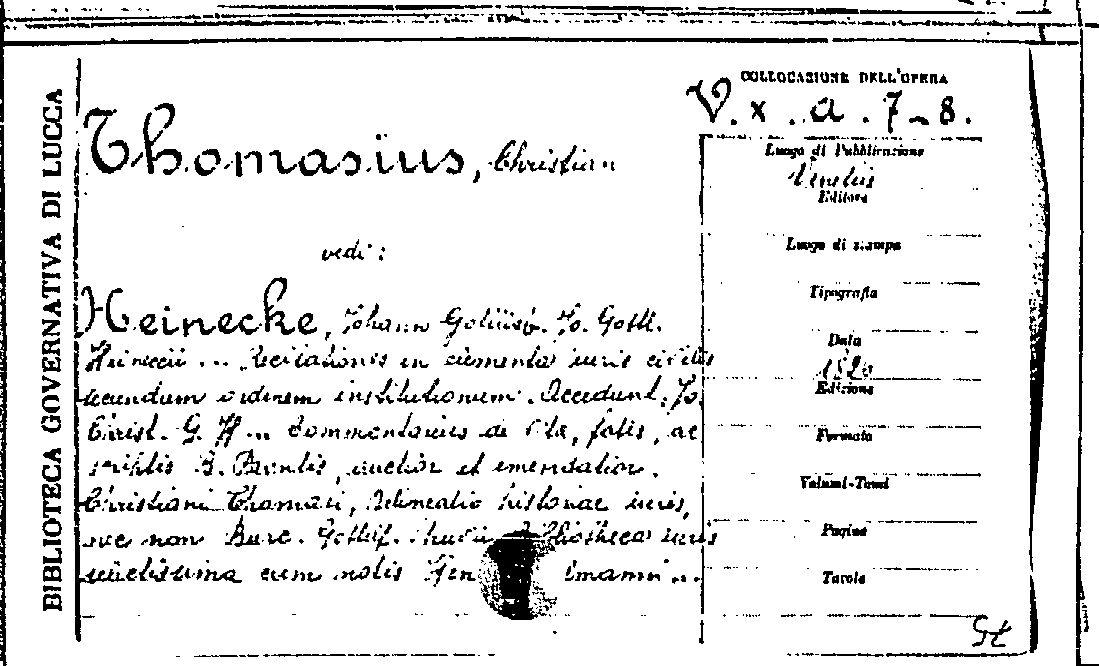 BIBLIOTECA GOVERNATIVA DI LUCCA
COLLOCAZIONE DELL'OPERA
V. x. a. 7-8.
Thomasius, Christian
vedi:
Heinecke, Johann Gottlieb. Jo. Gottl.
Heineccii ... Recitationes in elementa iuris civilis
secundum ordinem institutionum. Accedunt. Jo.
Christ. G. H... Commentarius de vita, fatis, ac
scriptis auctior et emendatior.
Christiani Thomasii, Delineatio historiae iuris,
nec non Burc. Gotthf. Bibliotheca iuris
selectissima cum notis
Luogo di Pubblicazione
Venetiis
Editore
Luogo di stampa
Tipografia
Data
Edizione
Formato
Volumi-Tomi
Pagine
Tavole